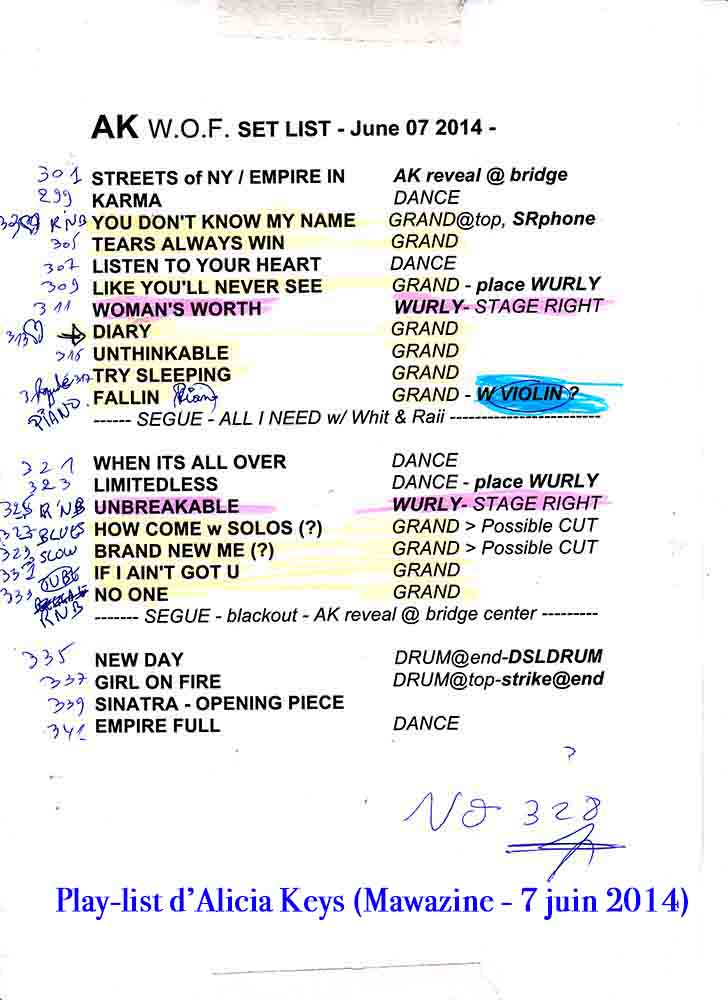 AK W.O.F. SET LIST - June 07 2014 -
301 STREETS of NY / EMPIRE IN AK reveal @ bridge
299 KARMA DANCE
R'NB YOU DON'T KNOW MY NAME GRAND@top, SRphone
305 TEARS ALWAYS WIN GRAND
307 LISTEN TO YOUR HEART DANCE
309 LIKE YOU'LL NEVER SEE GRAND - place WURLY
311 WOMAN'S WORTH WURLY- STAGE RIGHT
313 DIARY GRAND
315 UNTHINKABLE GRAND
317 TRY SLEEPING GRAND
PIANO. FALLIN Piano GRAND - W VIOLIN ?
------ SEGUE - ALL I NEED w/ Whit & Raii ------------------------
321 WHEN ITS ALL OVER DANCE
323 LIMITEDLESS DANCE - place WURLY
325 R'NB UNBREAKABLE WURLY- STAGE RIGHT
327 BLUES HOW COME w SOLOS (?) GRAND > Possible CUT
329 SLOW BRAND NEW ME (?) GRAND > Possible CUT
331 IF I AIN'T GOT U GRAND
333 RNB NO ONE GRAND
------- SEGUE - blackout - AK reveal @ bridge center ---------
335 NEW DAY DRUM@end-DSLDRUM
337 GIRL ON FIRE DRUM@top-strike@end
339 SINATRA - OPENING PIECE
341 EMPIRE FULL DANCE
?
No 328
Play-list d'Alicia Keys (Mawazine - 7 juin 2014)